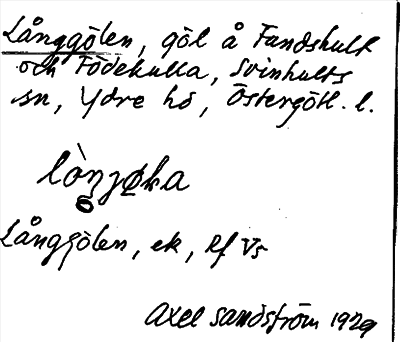 Långgölen, göl å Fundshult
och Födekulla, Svinhults
sn, Ydre hd, Östergötl. l.
Långgölen, ek, Rf Vs
Axel Sandström 1929